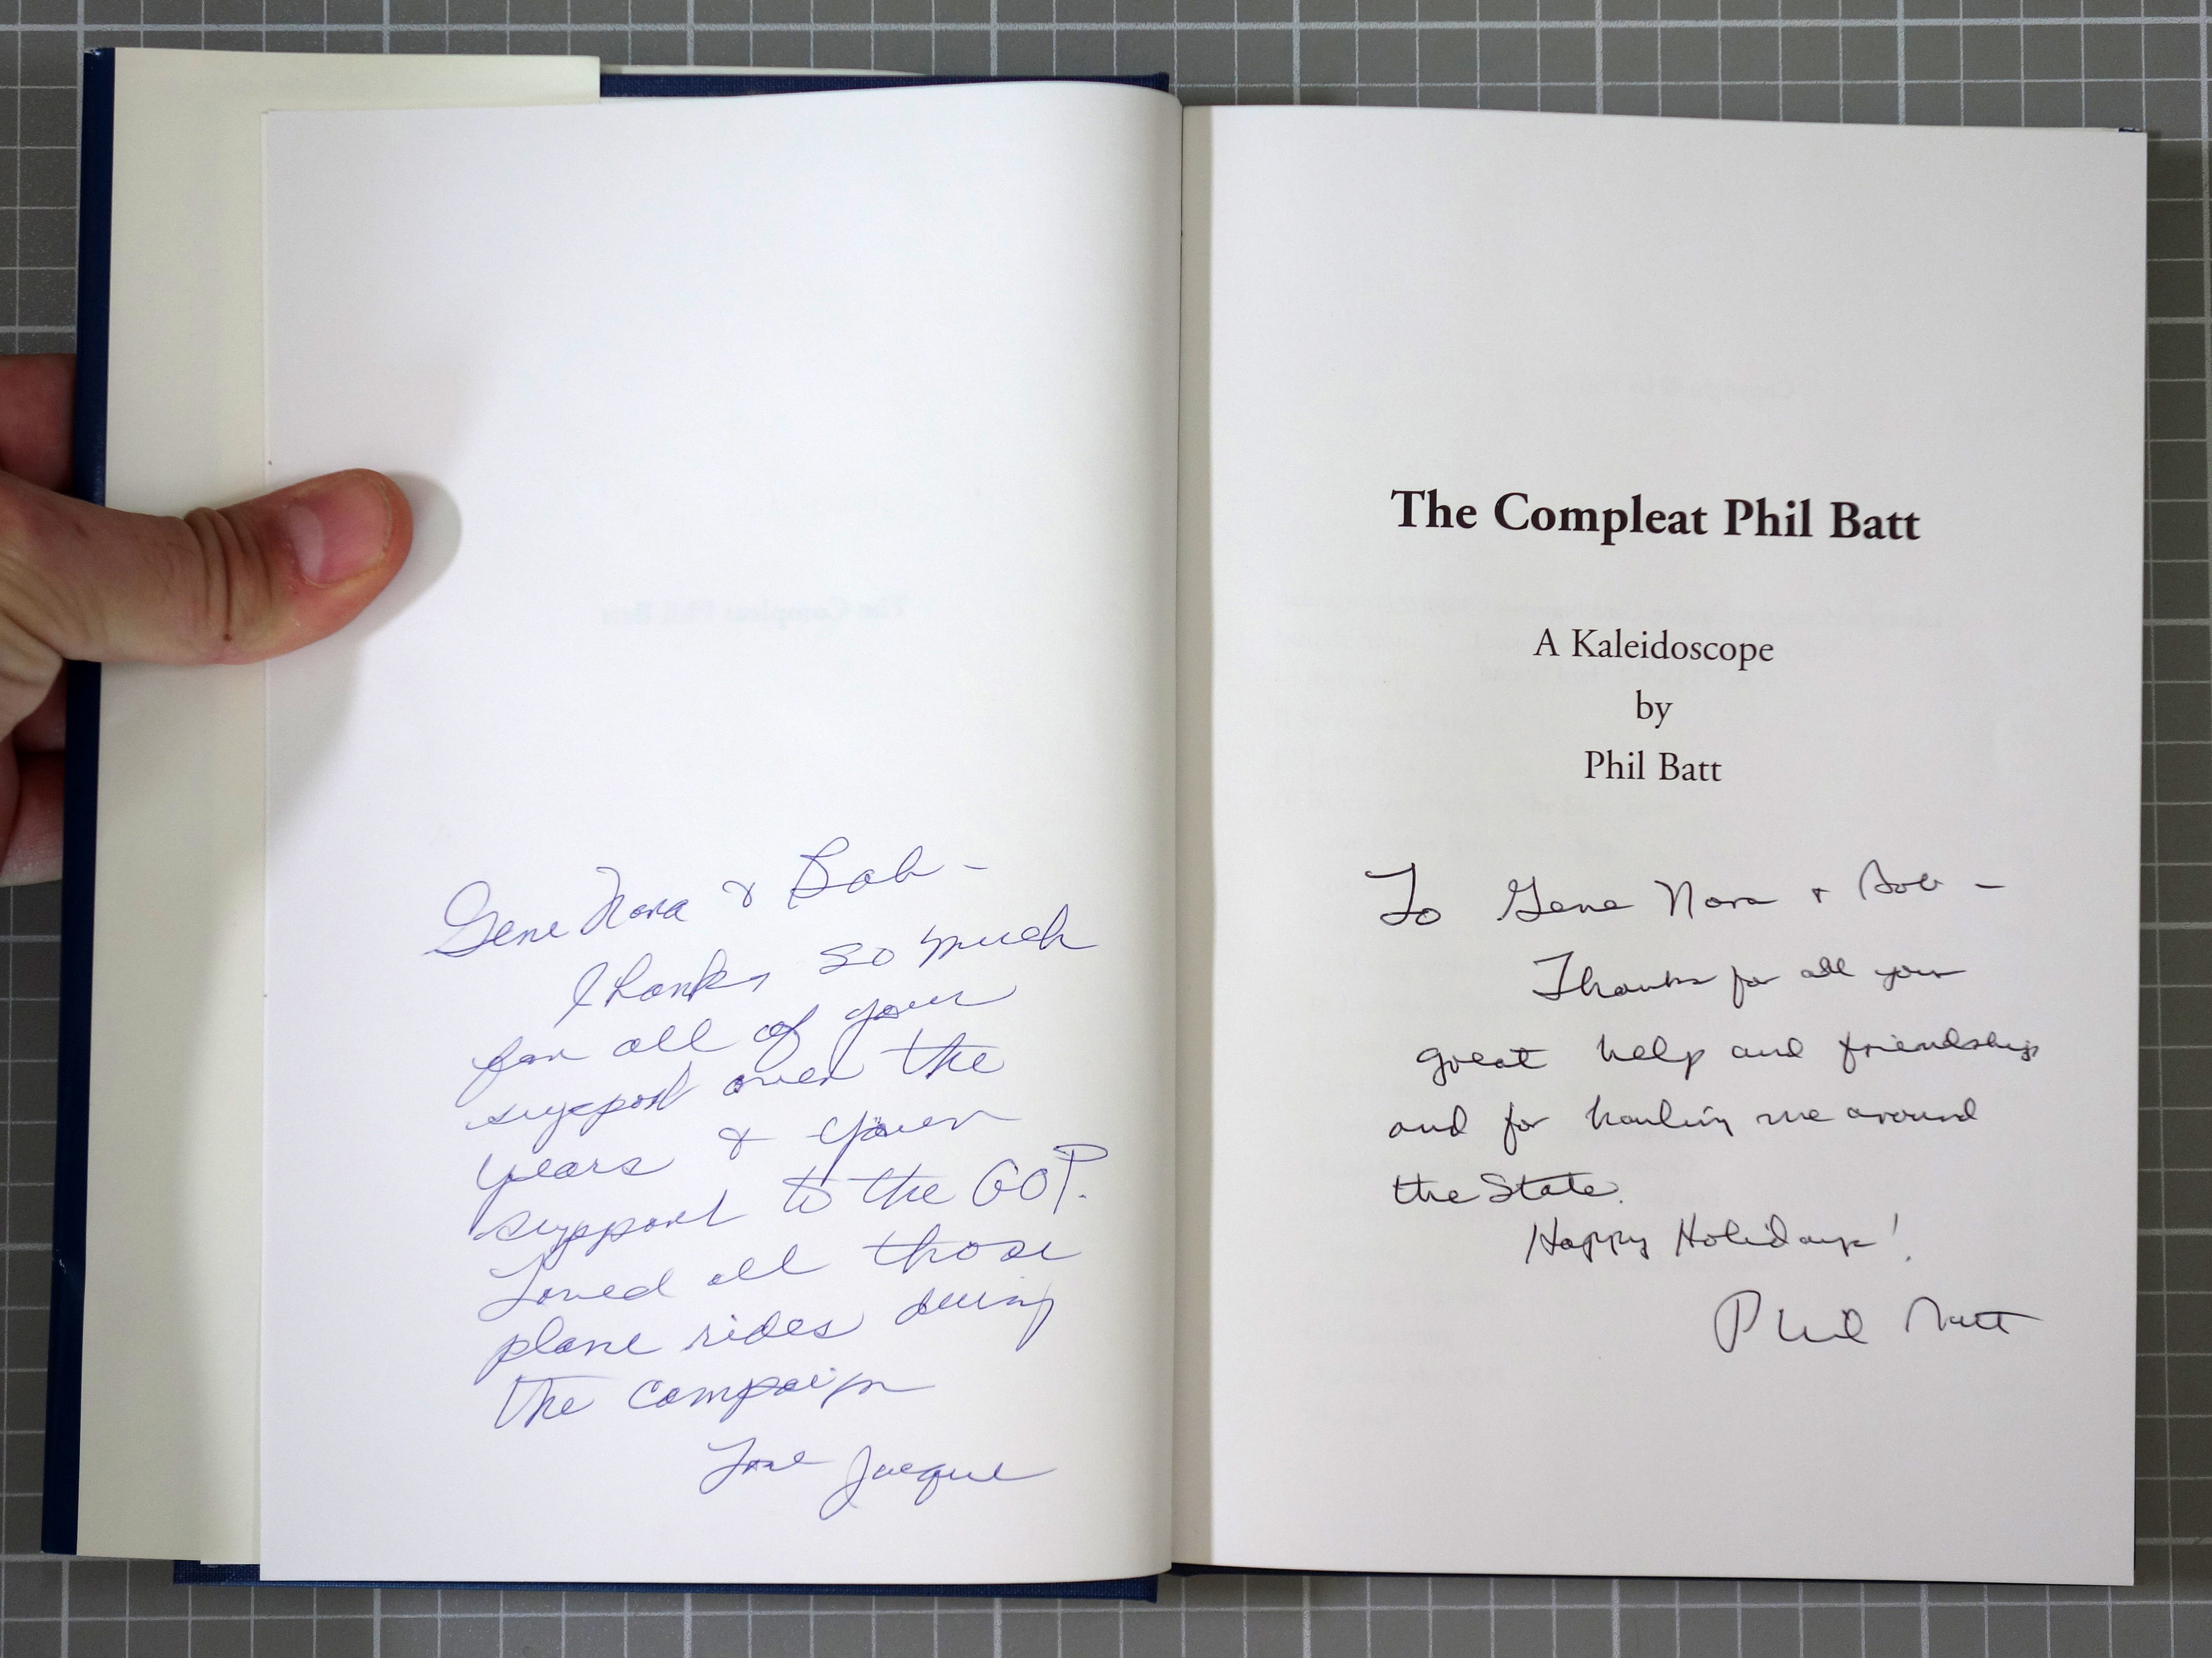 Gene Nora & Bob -
Thanks so much
for all of your
support over the
years & your
support to the GOP.
Loved all those
plane rides during
the campaign
Love Jacque
The Compleat Phil Batt
A Kaleidoscope
by
Phil Batt
To Gene Nora + Bob -
Thanks for all your
great help and friendship
and for hauling me around
the State.
Happy Holidays!
Phil Batt